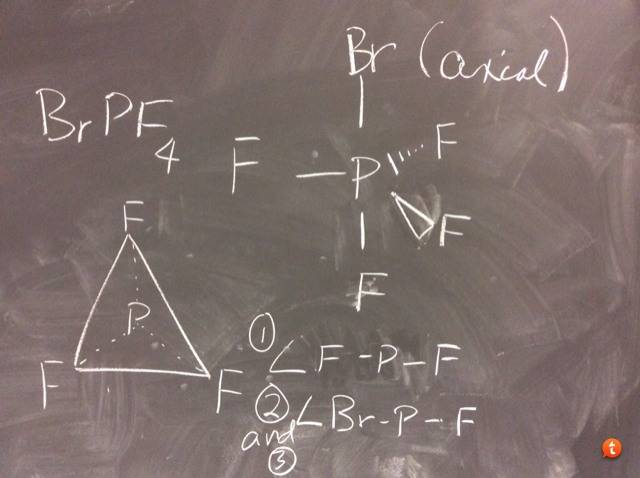 Br (axial)
BrPF4
F -P F
F
F
F
P
F F
① ∠ F-P-F
② ∠ Br-P-F
and
③
t